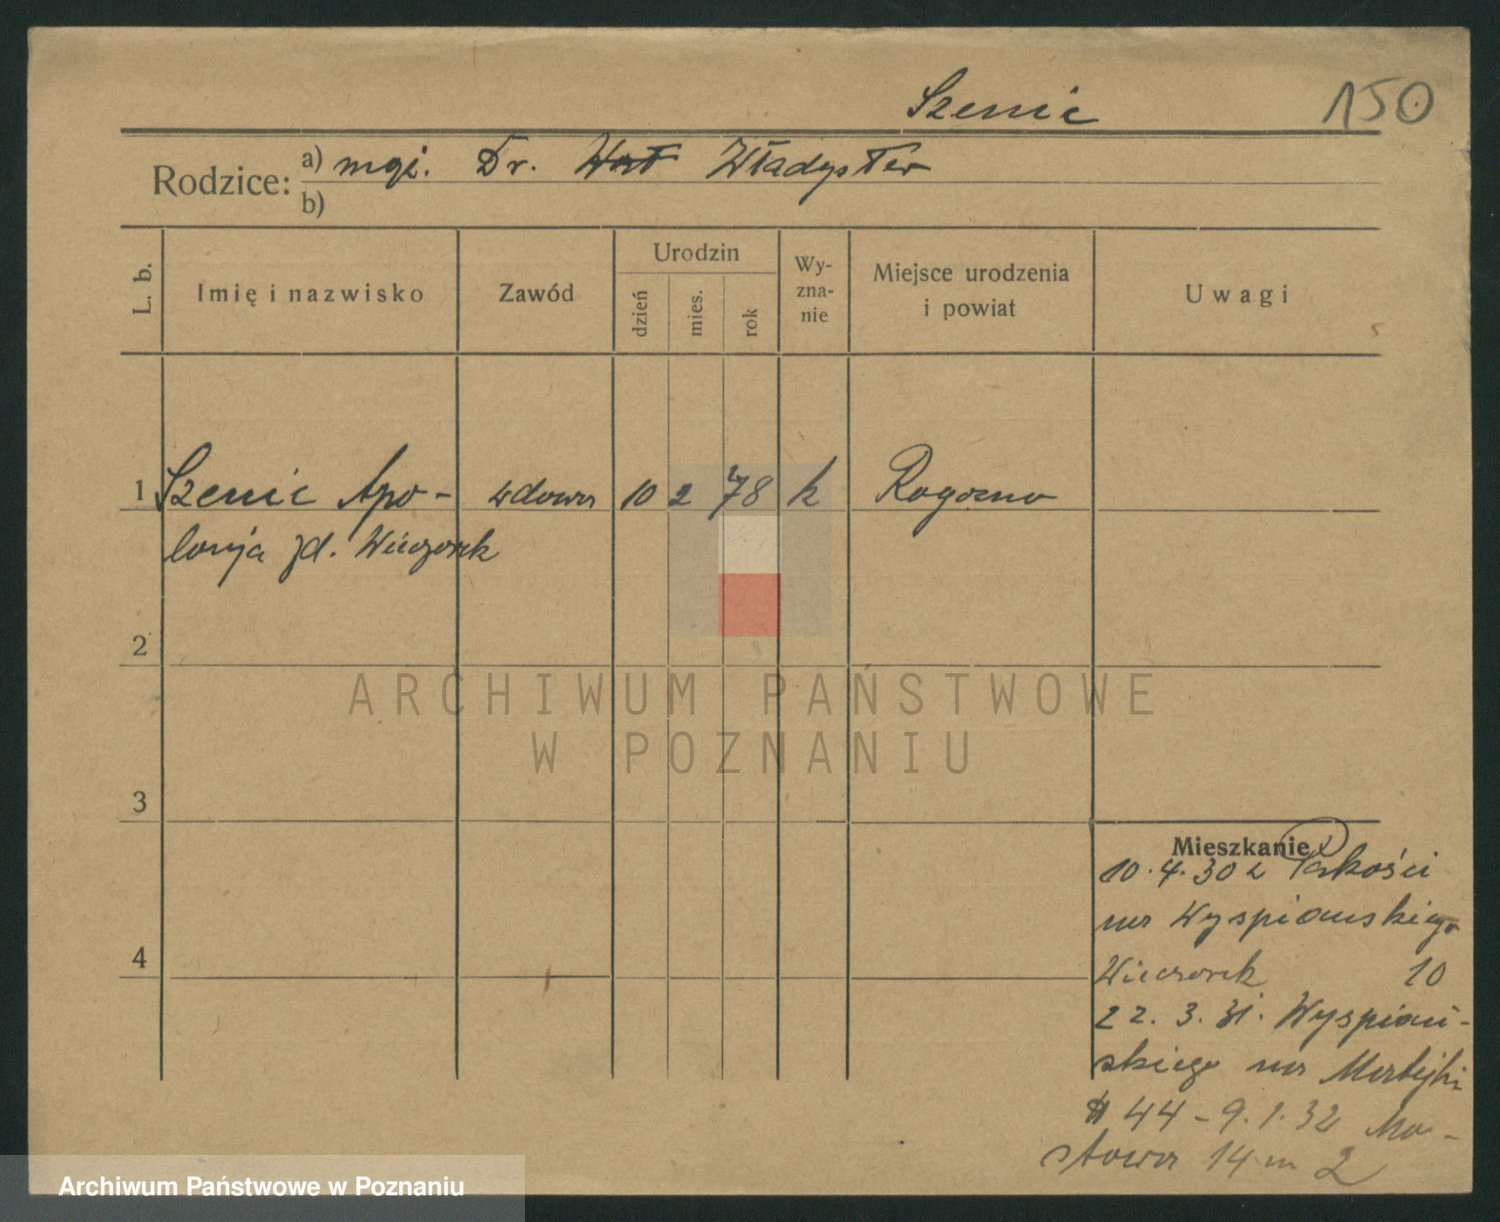 Szenic 150
Rodzice: a) mąż. Dr. Władysław
b)
L. b. Imię i nazwisko Zawód Urodzin dzień mies. rok Wy-zna-nie Miejsce urodzenia i powiat Uwagi
1 Szenic Apo- wdowa 10 2 78 k Rogozno
lonja zd. Wieczorek
2
ARCHIWUM PAŃSTWOWE
W POZNANIU
3
Mieszkanie
10.4.30 z Pakości
na Wyspiańskiego
Wieczorek 10
22. 3. 31. Wyspiań-
skiego na Matejki
44 - 9.1.32 Mo-
stowa 14 m 2
Archiwum Państwowe w Poznaniu